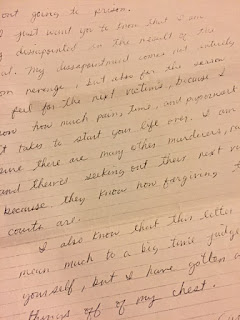 ont going to prison.
I just want you to know that I am
disappointed in the result of the
al. My dissapointment comes not entirely
om revenge, but also for the reason
I feel for the next victims, because I
now how much pain, time, and
it takes to start your life over. I am
sure there are many other murderers,
and thevis seeking out their next
because they know how forgiving
courts are.
I also know that this letter
mean much to a big time judge
yourself, but I have gotten
things off of my chest.